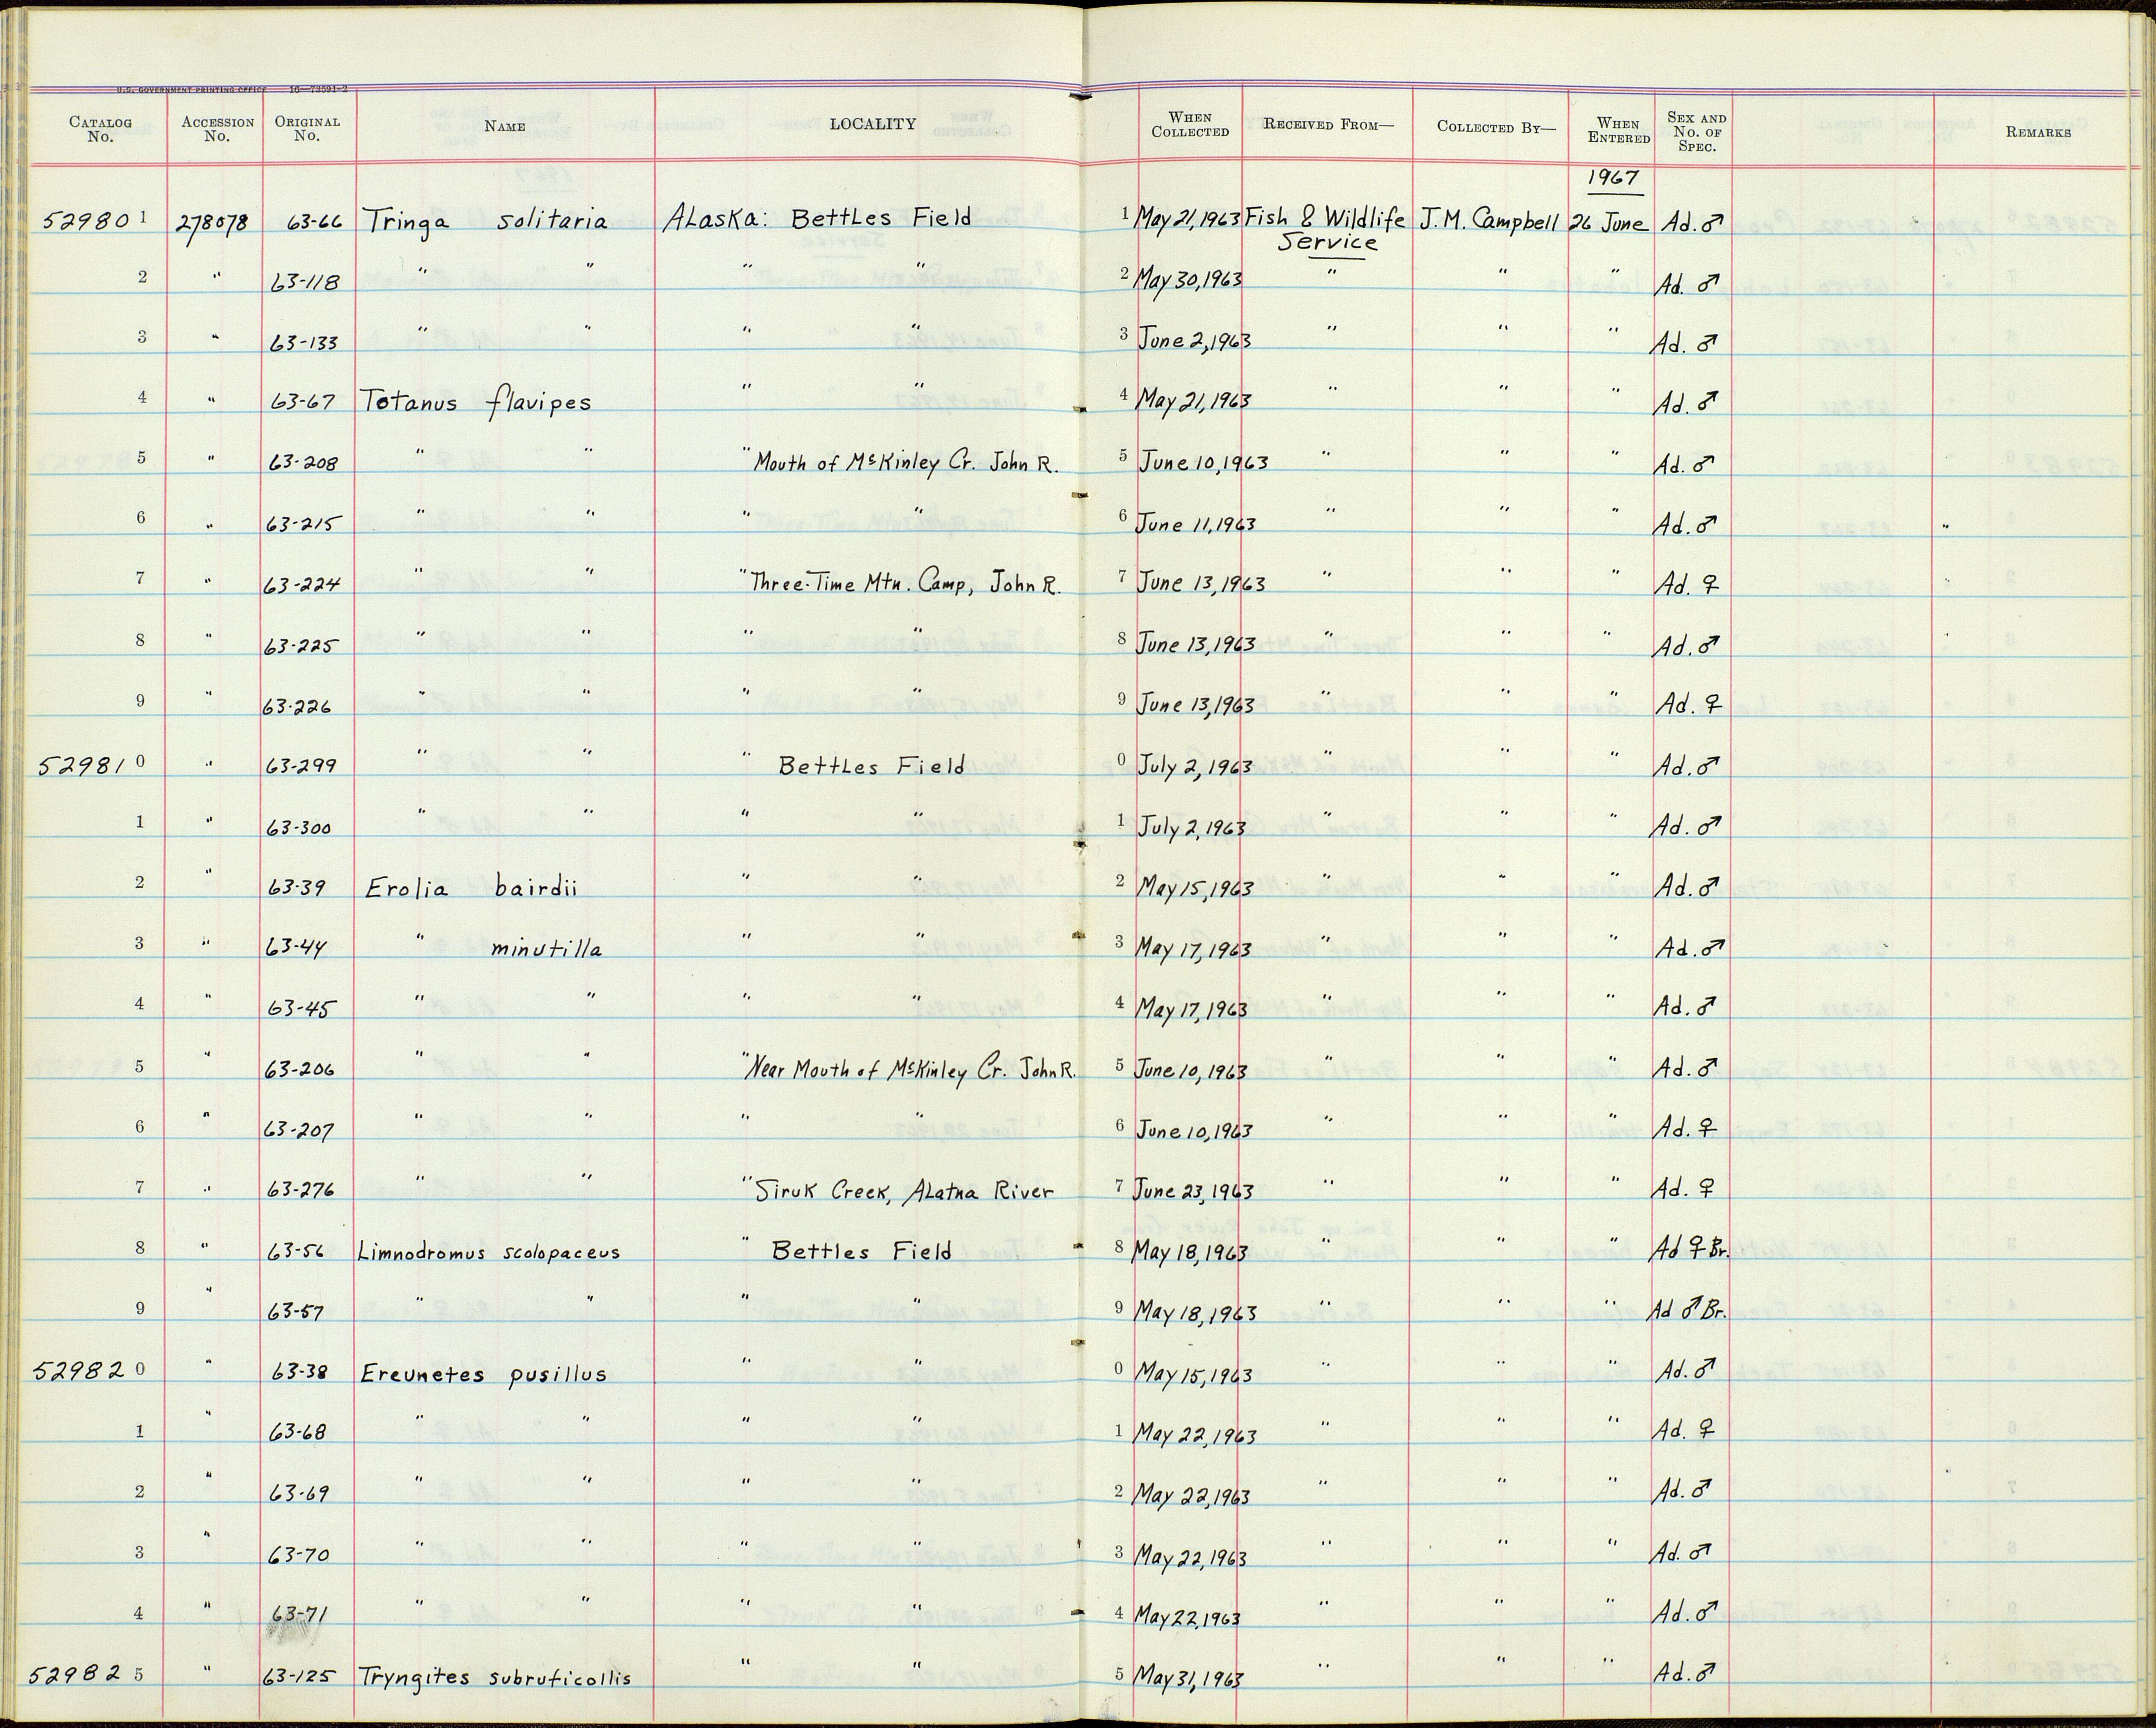 U.S. GOVERNMENT PRINTING OFFICE 16—73591-2
CATALOG No. ACCESSION No. ORIGINAL No. NAME LOCALITY WHEN COLLECTED RECEIVED FROM— COLLECTED BY— WHEN ENTERED SEX AND No. OF SPEC. REMARKS
1967
529801 278078 63-66 Tringa solitaria Alaska: Bettles Field 1 May 21, 1963 Fish & Wildlife Service J.M. Campbell 26 June Ad. ♂
2 " 63-118 " " " " 2 May 30, 1963 " " " Ad. ♂
3 " 63-133 " " " " 3 June 2, 1963 " " " Ad. ♂
4 " 63-67 Totanus flavipes " " 4 May 21, 1963 " " " Ad. ♂
5 " 63-208 " " " Mouth of McKinley Cr. John R. 5 June 10, 1963 " " " Ad. ♂
6 " 63-215 " " " " 6 June 11, 1963 " " " Ad. ♂ "
7 " 63-224 " " " Three-Time Mtn. Camp, John R. 7 June 13, 1963 " " " Ad. ♀
8 " 63-225 " " " " 8 June 13, 1963 " " " Ad. ♂
9 " 63-226 " " " " 9 June 13, 1963 " " " Ad. ♀
529810 " 63-299 " " " Bettles Field 0 July 2, 1963 " " " Ad. ♂
1 " 63-300 " " " " 1 July 2, 1963 " " " Ad. ♂
2 " 63-39 Erolia bairdii " " 2 May 15, 1963 " " " Ad. ♂
3 " 63-44 " minutilla " " 3 May 17, 1963 " " " Ad. ♂
4 " 63-45 " " " " 4 May 17, 1963 " " " Ad. ♂
5 " 63-206 " " " Near Mouth of McKinley Cr. John R. 5 June 10, 1963 " " " Ad. ♂
6 " 63-207 " " " " 6 June 10, 1963 " " " Ad. ♀
7 " 63-276 " " " Siruk Creek, Alatna River 7 June 23, 1963 " " " Ad. ♀
8 " 63-56 Limnodromus scolopaceus " Bettles Field 8 May 18, 1963 " " " Ad ♀ Br.
9 " 63-57 " " " " 9 May 18, 1963 " " " Ad ♂ Br.
529820 " 63-38 Ereunetes pusillus " " 0 May 15, 1963 " " " Ad. ♂
1 " 63-68 " " " " 1 May 22, 1963 " " " Ad. ♀
2 " 63-69 " " " " 2 May 22, 1963 " " " Ad. ♂
3 " 63-70 " " " " 3 May 22, 1963 " " " Ad. ♂
4 " 63-71 " " " " 4 May 22, 1963 " " " Ad. ♂
529825 " 63-125 Tryngites subruficollis " " 5 May 31, 1963 " " " Ad. ♂